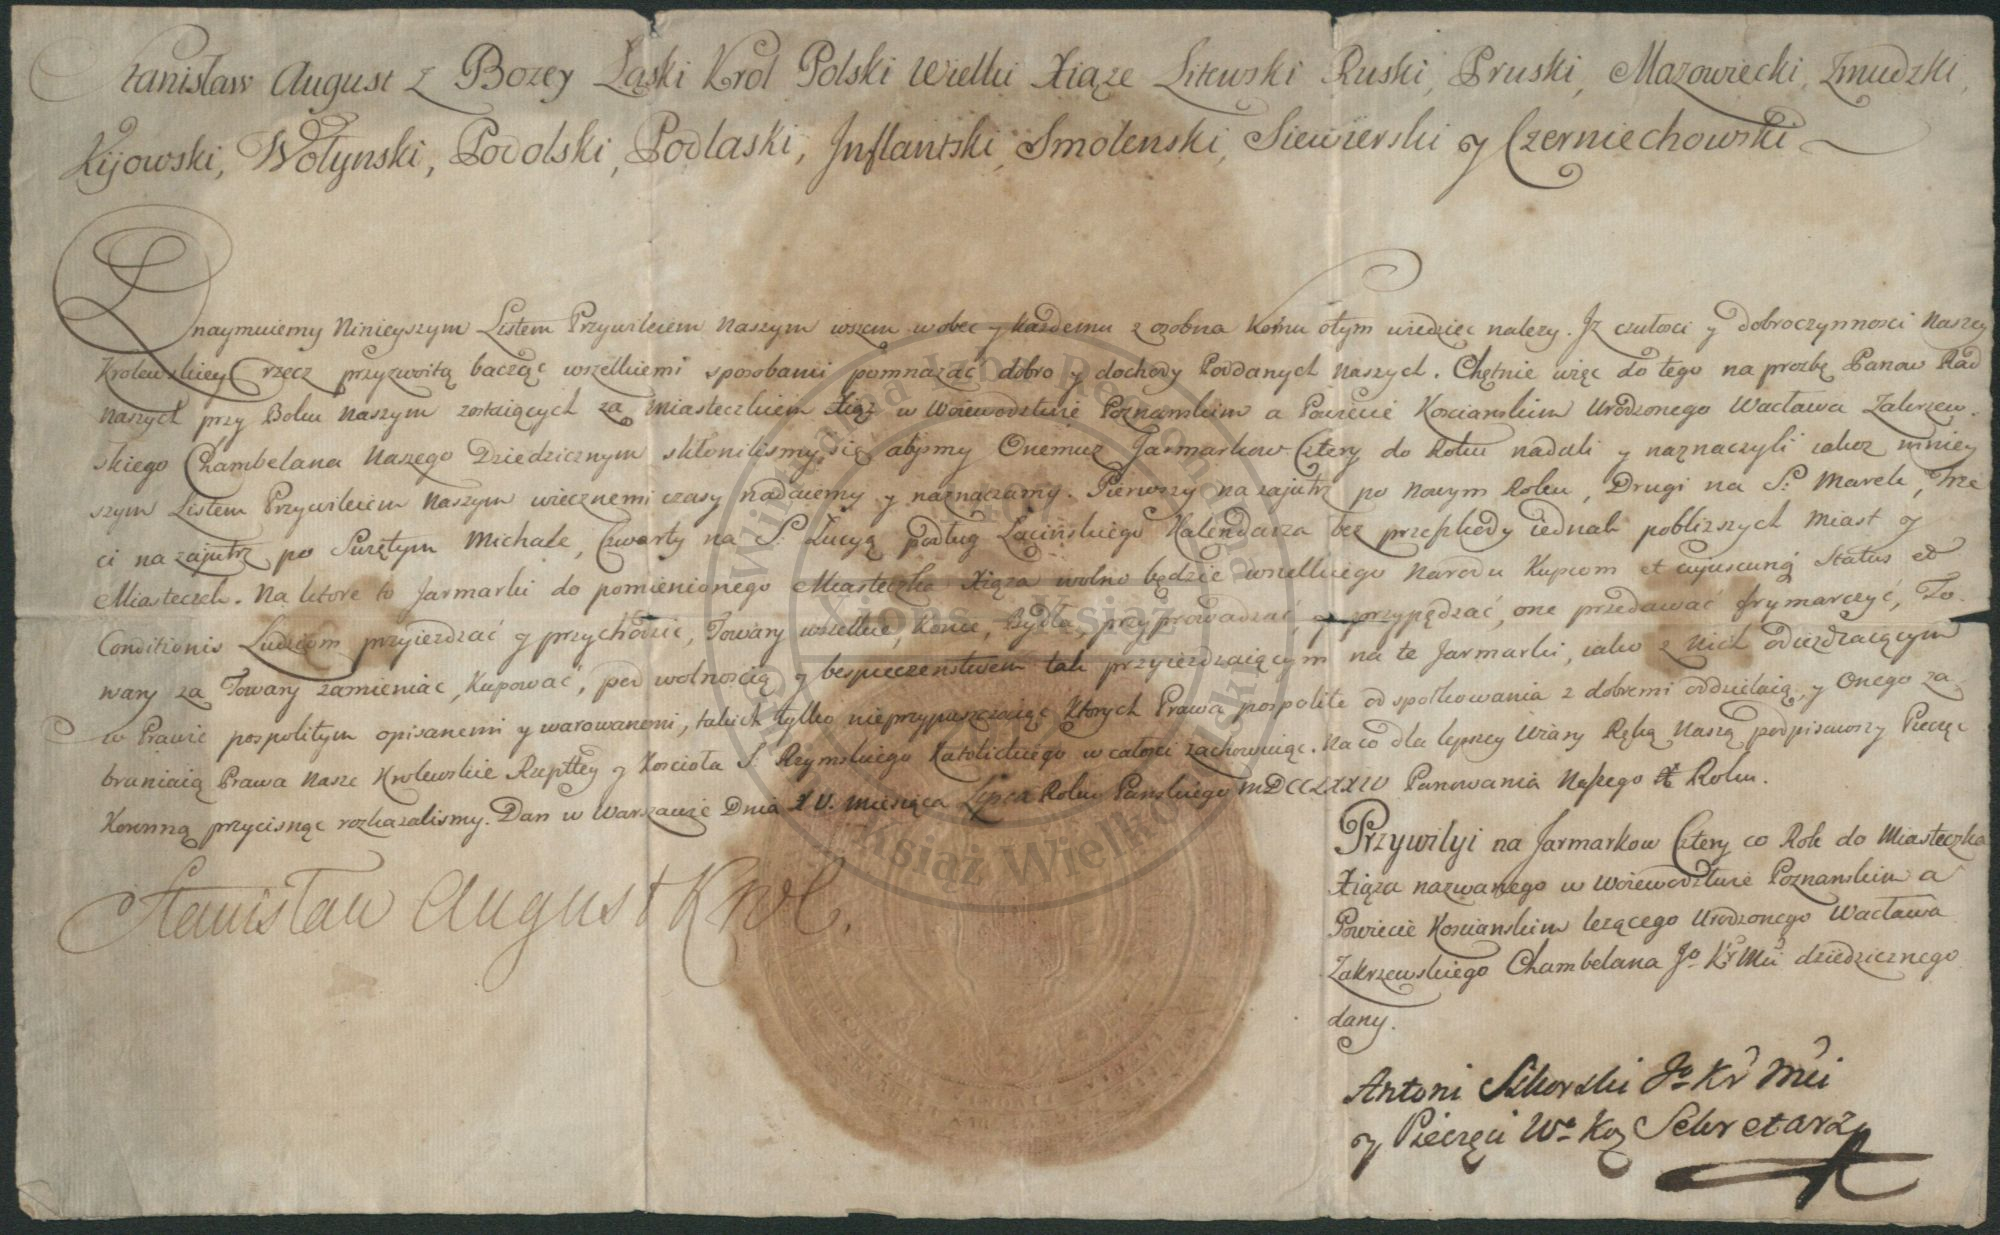 Stanisław August z Bozey Łaski Krol Polski Wielki Xiąze Litewski Ruski, Pruski, Mazowiecki, Zmudzki,
Kijowski, Wołynski, Podolski, Podlaski, Inflantski, Smolenski, Siewierski y Czerniechowski
Znaymuiemy Ninieyszym Listem Przywileiem Naszym wszem wobec y każdemu z osobna komu otym wiedziec nalezy. Iz czułosci y dobroczynnosci Naszey
Krolewskiey rzecz przyzwoitą bacząc wszelkiemi sposobami pomnażać dobro y dochody Poddanych naszych. Chętnie więc do tego na prozbę Panow Rad
naszych przy Boku Naszym zostaiących za Miasteczkiem Xiąz w Woiewodztwie Poznanskim a Powiecie Koscianskim Urodzonego Wacława Zakrzew-
skiego Chambelana Naszego Dziedzicznym skłonilismy się abysmy Onemuz Jarmarkow Cztery do Roku nadali y naznaczyli iakoz niniey
szym Listem Przywileiem Naszym wiecznemi czasy nadaiemy y naznaczamy. Pierwszy na zajutrz po Nowym Roku, Drugi na S: Marek, Trze
ci na zajutrz po Swiętym Michale, Czwarty na S: Lucyą podług Łacińskiego Kalendarza bez przeszkody iednak poblizszych Miast y
Miasteczek. Na ktore to Jarmarki do pomienionego Miasteczka Xiąza wolno będzie wszelkiego Narodu Kupcom et cujuscunq Status et
Conditionis Ludziom przyiezdzać y przychodzic, Towary wszelkie, Konie, Bydła, przyprowadzać, y przypędzać, one przedawać frymarczyć, To-
wary za Towary zamieniac, Kupować, pod wolnoscią y bespieczenstwem tak przyiezdzaiącym na te Jarmarki, iako z nich odiezdzaiącym
w Prawie pospolitym opisanemi y warowanemi, takich tylko nieprzypuszczaiąc Ktorych Prawa pospolite od społkowania z dobremi oddzielaią, y Onego za-
braniaią Prawa Nasze Krolewskie Rupltey y Koscioła S. Rzymskiego Katolickiego w całosci zachowuiąc. Na co dla lepszey Wiary Ręką Naszą podpisawszy Pieczęc
Koronną przycisnąc rozkazalismy. Dan w Warszawie Dnia XV. Miesiąca Lipca Roku Panskiego MDCCLXXIV Panowania Naszego X Roku.
Stanisław August Krol.
Przywilyi na Jarmarkow Cztery co Rok do Miasteczka
Xiąza nazwanego w Woiewodztwie Poznanskim a
Powiecie Koscianskim lezącego Urodzonego Wacława
Zakrzewskiego Chambelana Jo Kr Mci dziedzicznego
dany.
Antoni Sikorski Jo Kr Mci
y Pieczęci We Ko Sekretarz